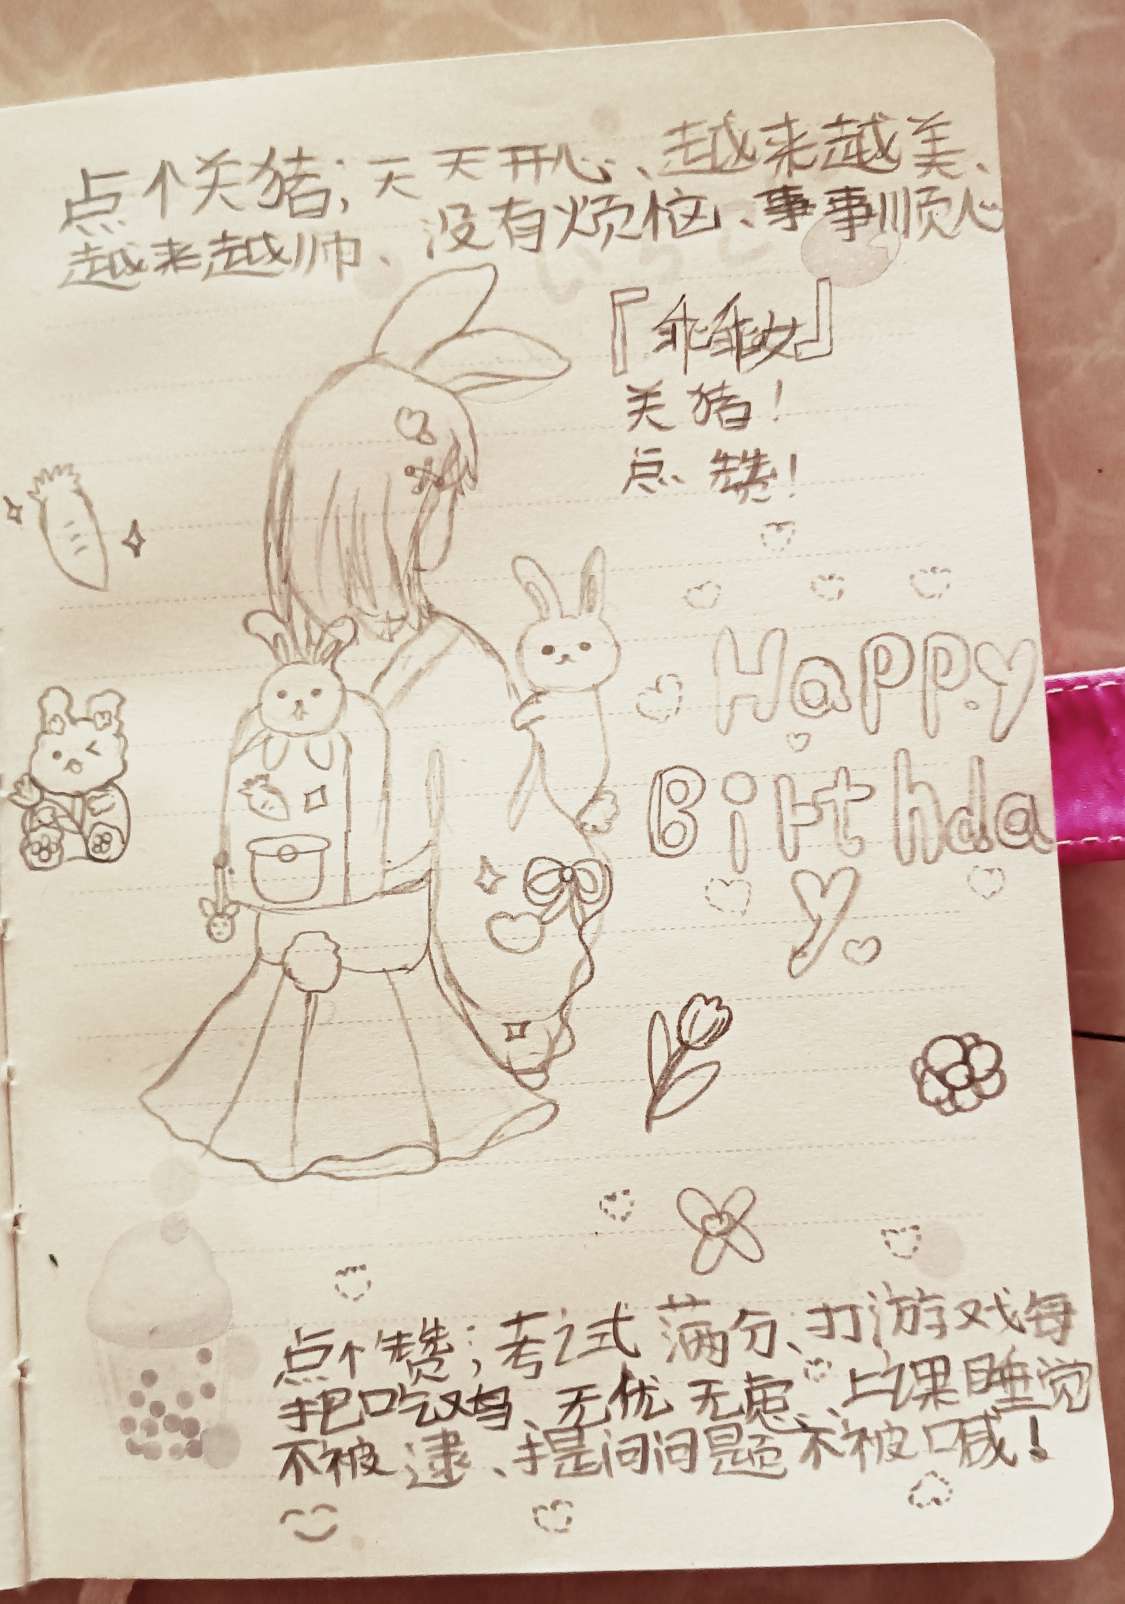 点个关猪;天天开心、越来越美、
越来越帅、没有烦恼、事事顺心
『乖乖女』
关猪!
点赞!
Happy
Birthda
y
点个赞;考试满分、打游戏每
把吃鸡、无忧无虑、上课睡觉
不被逮、提问问题不被喊!